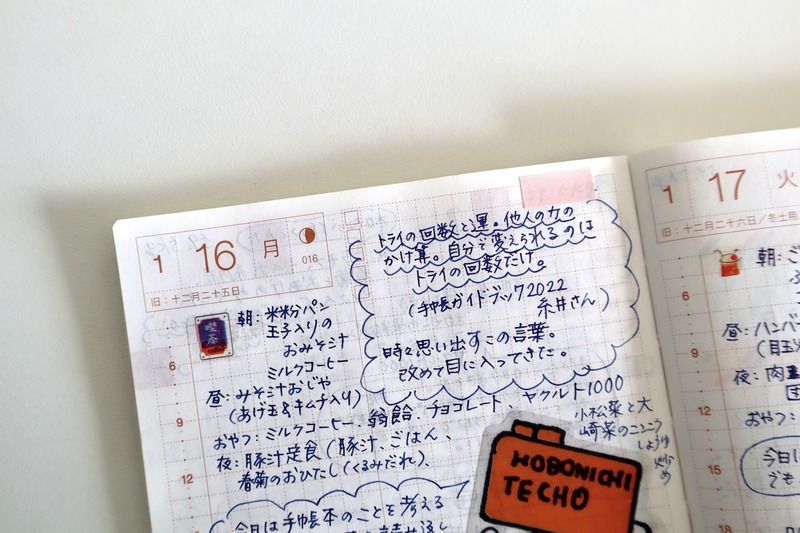 1 16 月
016
旧：十二月二十五日
トライの回数と運。他人の力の
かけ算。自分で変えられるのは
トライの回数だけ。
(手帳ガイドブック2022
糸井さん)
時々思い出すこの言葉。
改めて目に入ってきた。
喫茶
朝：米粉パン
玉子入りの
おみそ汁
ミルクコーヒー
昼：みそ汁おじや
(あげ玉&キムチ入り)
おやつ：ミルクコーヒー、翁飴、チョコレート、ヤクルト1000
夜：豚汁定食(豚汁、ごはん、
春菊のおひたし(くるみだれ)、
小松菜と大
崎菜のニンニク
しょうゆ
炒め
6
9
12
今日は手帳本のことを考える
HOBONICHI
TECHO
1 17 火
旧：十二月二十六日/冬土用
朝：ご
6
昼：ハンバー
(目玉
9
夜：肉
12
おやつ：
15
今日に
でも